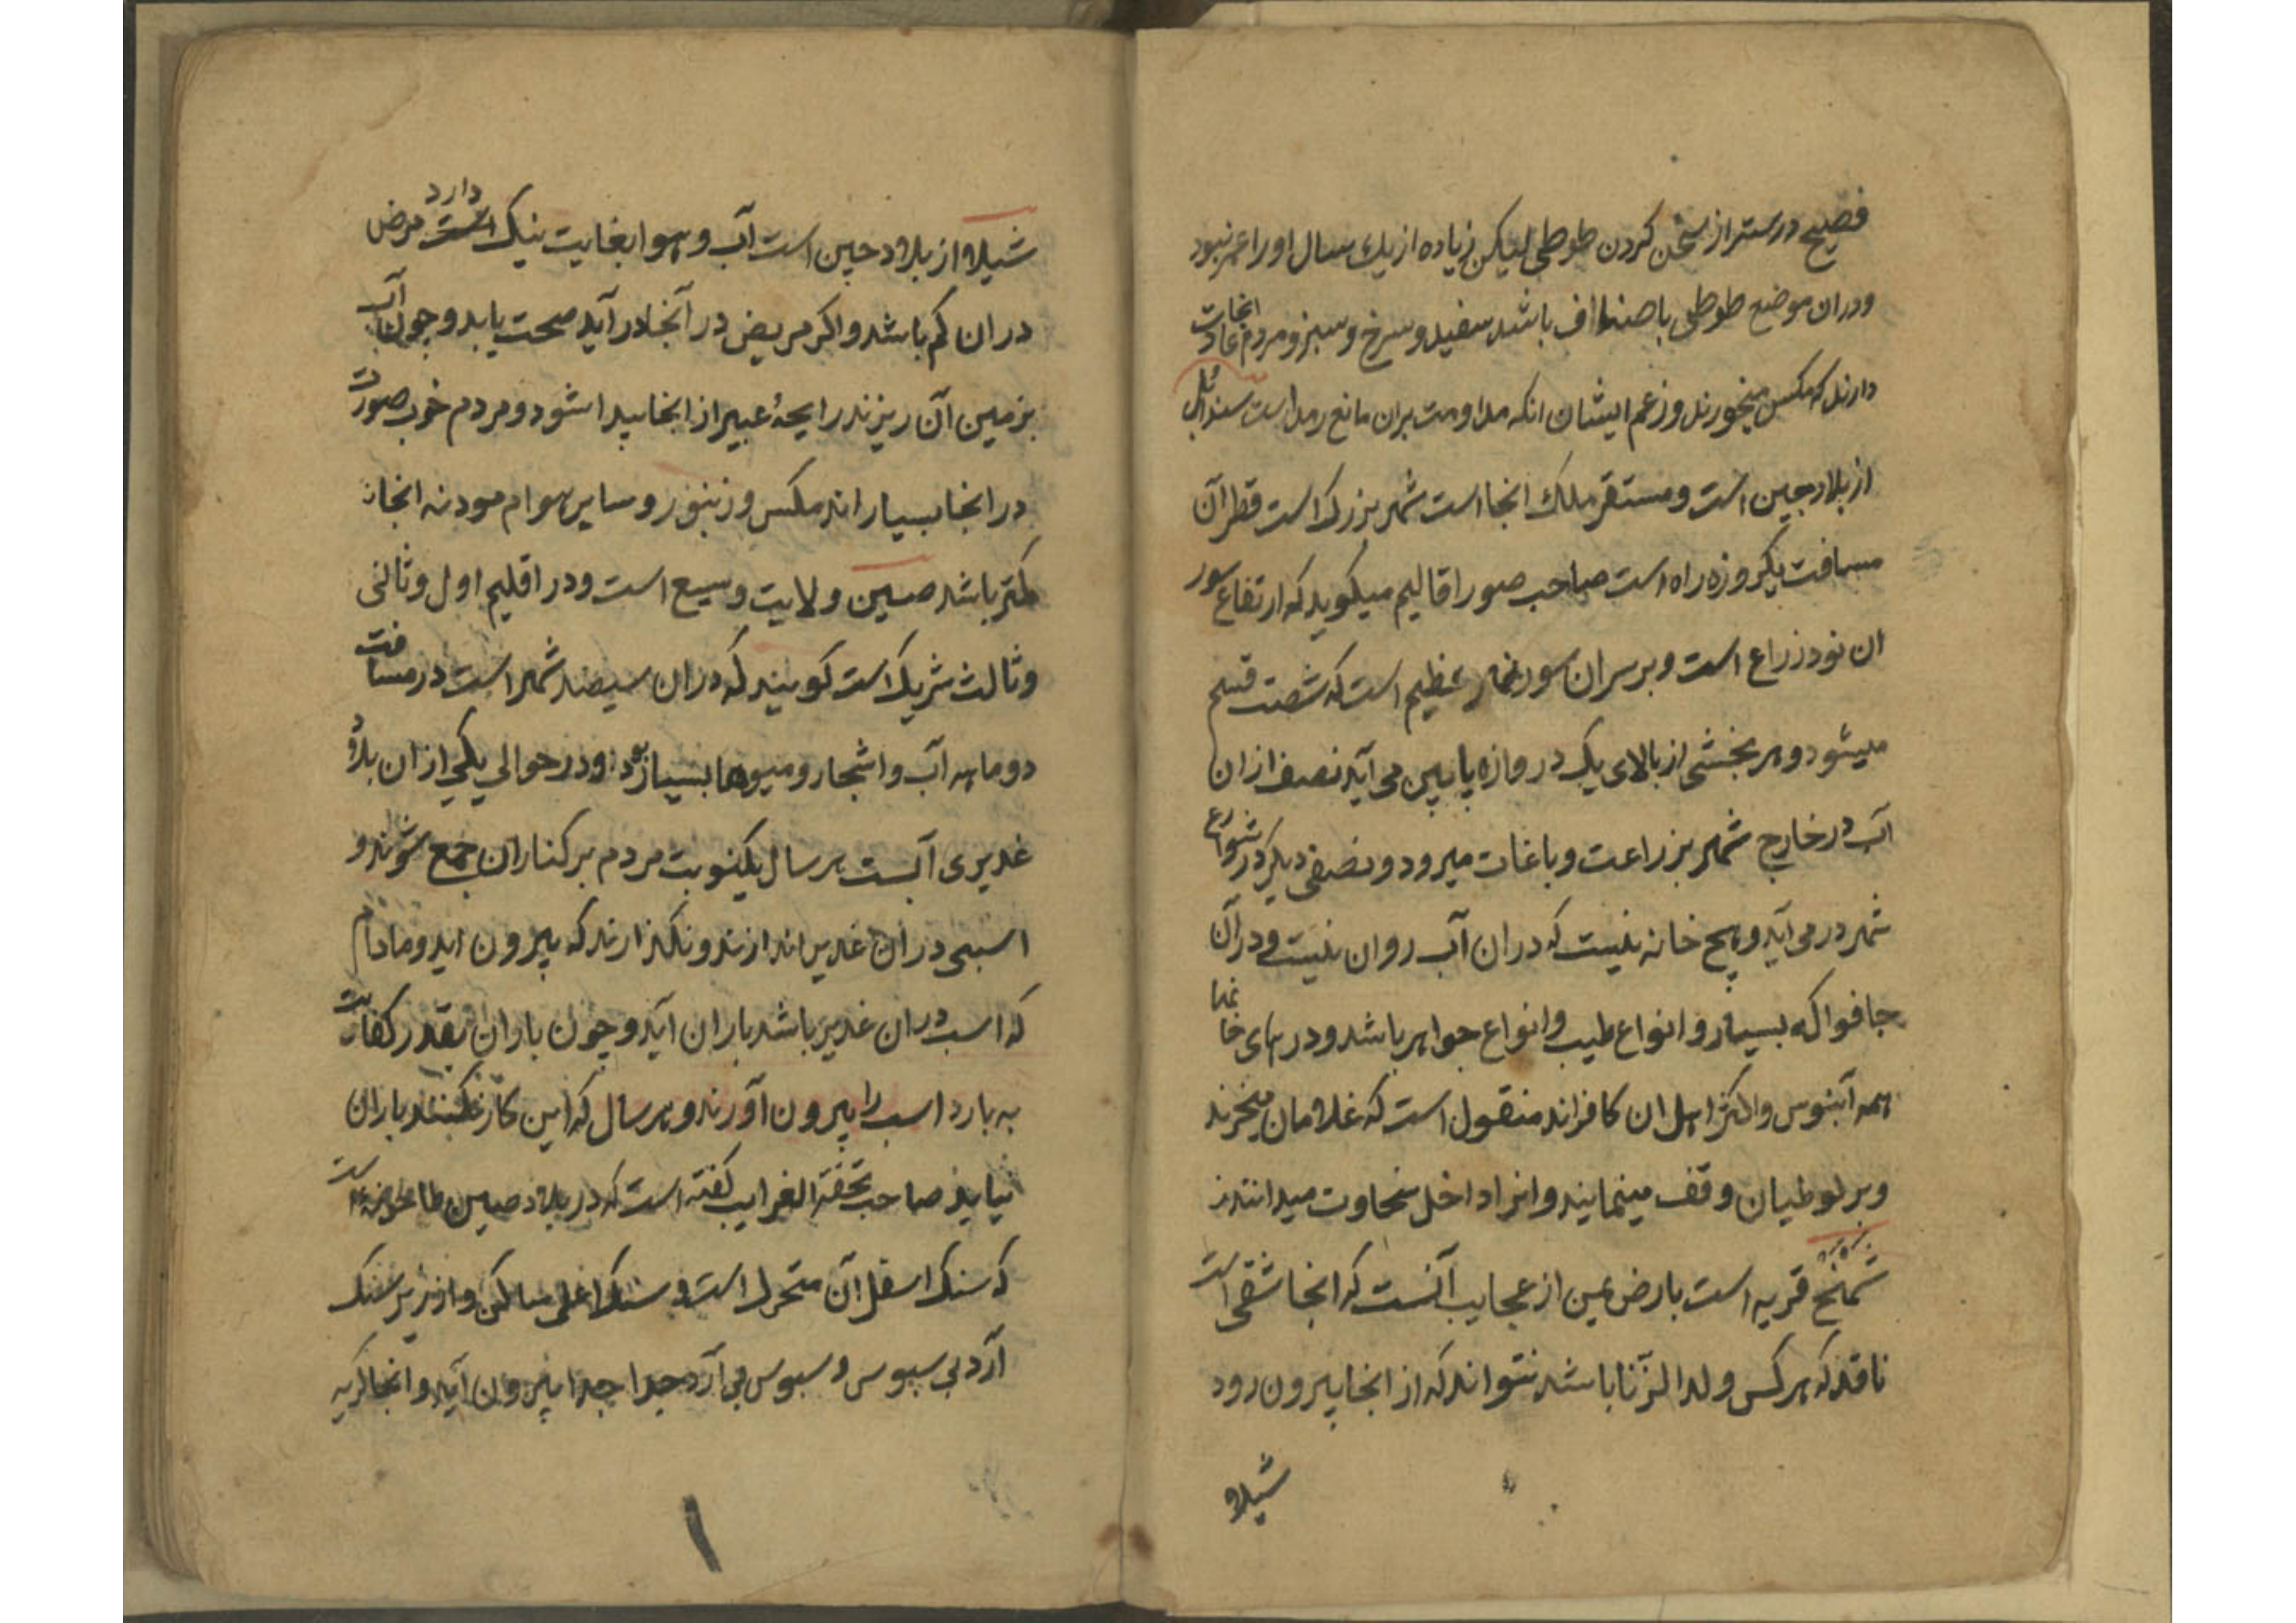 فصیح درستر از سخن کردن طوطی لیکن زیاده از یك سال او را عمر نبود
ودران موضع طوطی با صنااف باشد سفید و سرخ و سبز و مردم انجا عادت
دارند که مکس میخورند و زعم ایشان انکه مداومت بران مانع رمد است سندابل
از بلاد جین است و مستقر ملك انجا است شهر بزرک است قطر آن
مسافت یکروزه راه است صاحب صور اقالیم میکوید که ارتفاع سور
ان نود زراع است و بر سر ان سور عظیم است که شصت قسم
میشود و هر بخشی از بالای یک دروازه پایین می آید نصف ازان
آب در خارج شهر بزراعت و باغات میرود و نصفی دیکر در شوارع
شهر در می آید و هیج خانه نیست که دران آب روان نیست و درآن
جا فواکه بسیار و انواع طیب و انواع جواهر باشد و درهای خانها
همه آبنوس و اکثر اهل ان کافراند منقول است که غلامان میخرند
و بر لوطیان وقف مینمایند و انرا داخل سخاوت میدانند
قریه است بارض عین از عجایب آنست که انجا شقی است
نافذ که هر کس ولد الزنا باشد نتواند که از انجا بیرون رود
شیلا
شیلا از بلاد جین است آب و هوا بغایت نیک دارد مرض
دران کم باشد و اکر مریض در آنجا در آید صحت یابد و چون آب
بزمین آن ریزند رایحۀ عبیر از انجا پیدا شود و مردم خوب صورت
در انجا بسیار اند مکس و زنبور و سایر هوام موذیه انجا
کمتر باشد صین ولایت وسیع است و در اقلیم اول و ثانی
و ثالث شریک است کویند که دران سیصد شهر است در مسافت
دو ماهه آب و اشجار و میوها بسیار بود و در حوالی یکی از ان بلاد
غدیری آبست هر سال یکنوبت مردم بر کنار ان جمع شوند و
اسبی در ان غدیر اندازند و نکذارند که بیرون اید و مادام
که اسب دران غدیر باشد باران آید و چون باران بقدر کفایت
به بارد اسب را بیرون آورند و هر سال که این کار نکنند باران
نیاید صاحب تحفة الغرایب کفته است که در بلاد صین طاحونه است
که سنک اسفل آن متحرک است و سنک اعلی ساکن و از زیر سنک
آرد بی سبوس و سبوس بی آرد جدا جدا بیرون آید و انجا کریه
۱